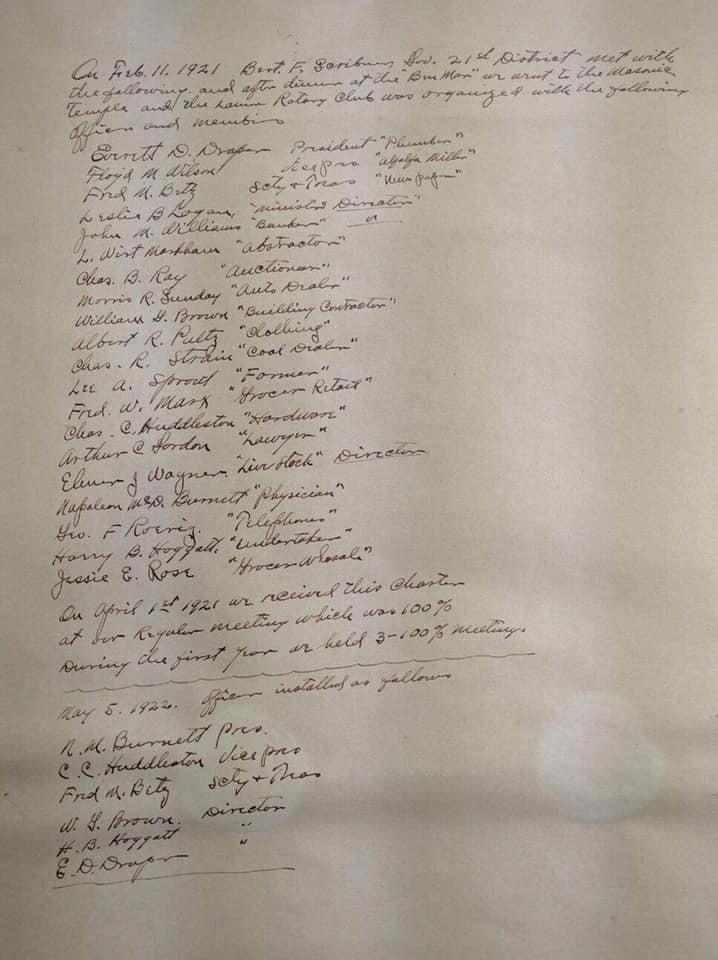 On Feb. 11. 1921 Bert. F. Scribner, Gov. 21st District met with
the following and after dinner at the "Ben Mar" we went to the Masonic
Temple and the Lamar Rotary Club was organized with the following
officers and members
Everett D. Draper President "Plumber"
Floyd M. Wilson Vice pres "Alfalfa Miller"
Fred M. Betz Scty & Treas "News paper"
Leslie B Logan, "Minister" Director
John M. Williams "Banker" "
L. Wirt Markham "Abstractor"
Chas. B. Ray "Auctioneer"
Morris R. Sunday "Auto Dealer"
William G. Brown "Building Contractor"
Albert R. Pultz "Clothing"
Chas. R. Strain "Coal Dealer"
Lee A. Sprout "Farmer"
Fred. W. Marx "Grocer Retail"
Chas. C. Huddleston "Hardware"
Arthur C Gordon "Lawyer"
Elmer J Wagner "Live Stock" Director
Napoleon M. Burnett "Physician"
Geo. F Roerig. "Telephones"
Harry B. Hoggatt. "Undertaker"
Jessie E. Rose "Grocer Whosale"
On April 1st 1921 we received this Charter
at our Regular meeting which was 100%
During the first year we held 3-100% meetings
May 5. 1922. officers installed as follows
N. M. Burnett pres.
C. C. Huddleston Vice pres
Fred M. Betz Scty & Treas
W. G. Brown. Director
H. B. Hoggatt "
E. D. Draper "